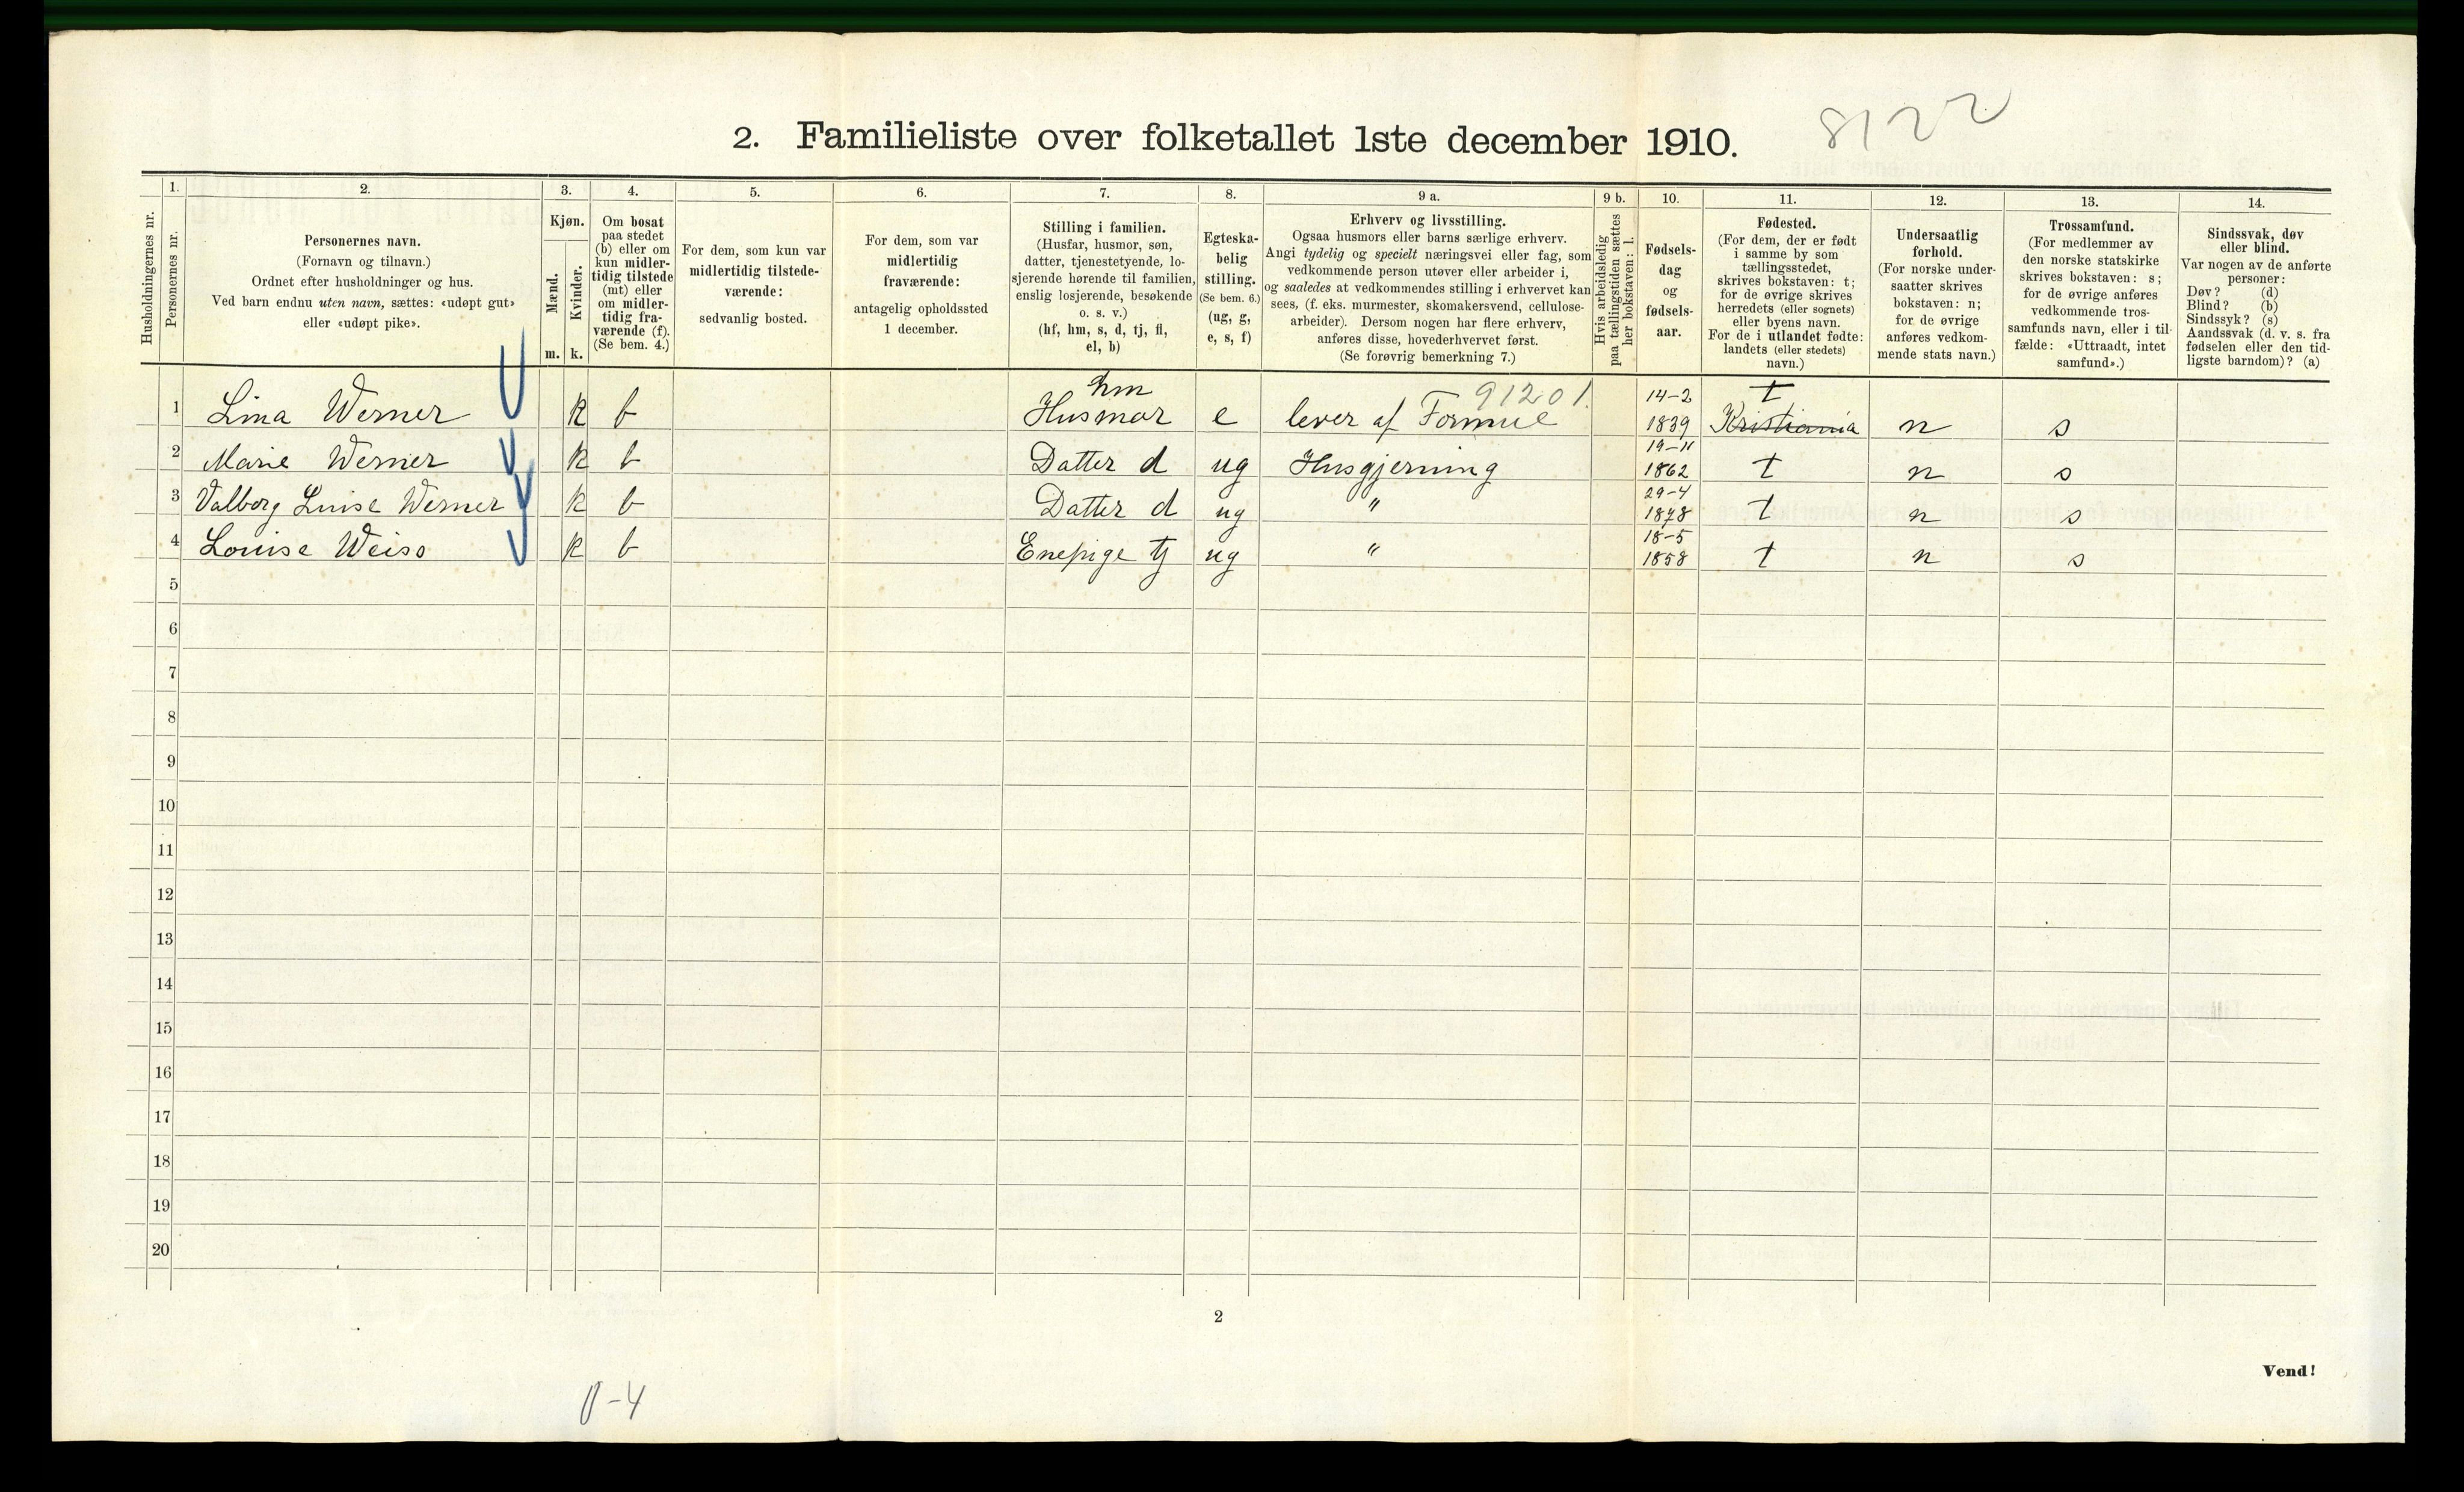 8122
2. Familieliste over folketallet 1ste december 1910.
Husholdningernes nr.
1.
Personernes nr.
2.
Personernes navn.
(Fornavn og tilnavn.)
Ordnet efter husholdninger og hus.
Ved barn endnu uten navn, sættes: «udøpt gut»
eller «udøpt pike».
3.
Kjøn.
Mænd.
Kvinder.
m. k.
4.
Om bosat
paa stedet
(b) eller om
kun midler-
tidig tilstede
(mt) eller
om midler-
tidig fra-
værende (f).
(Se bem. 4.)
5.
For dem, som kun var
midlertidig tilstede-
værende:
sedvanlig bosted.
6.
For dem, som var
midlertidig
fraværende:
antagelig opholdssted
1 december.
7.
Stilling i familien.
(Husfar, husmor, søn,
datter, tjenestetyende, lo-
sjerende hørende til familien,
enslig losjerende, besøkende
o. s. v.)
(hf, hm, s, d, tj, fl,
el, b)
8.
Egteska-
belig
stilling.
(Se bem. 6.)
(ug, g,
e, s, f)
9 a.
Erhverv og livsstilling.
Ogsaa husmors eller barns særlige erhverv.
Angi tydelig og specielt næringsvei eller fag, som
vedkommende person utøver eller arbeider i,
og saaledes at vedkommendes stilling i erhvervet kan
sees, (f. eks. murmester, skomakersvend, cellulose-
arbeider). Dersom nogen har flere erhverv,
anføres disse, hovederhvervet først.
(Se forøvrig bemerkning 7.)
9 b.
Hvis arbeidsledig
paa tællingstiden sættes
her bokstaven: l.
10.
Fødsels-
dag
og
fødsels-
aar.
11.
Fødested.
(For dem, der er født
i samme by som
tællingsstedet,
skrives bokstaven: t;
for de øvrige skrives
herredets (eller sognets)
eller byens navn.
For de i utlandet fødte:
landets (eller stedets)
navn.)
12.
Undersaatlig
forhold.
(For norske under-
saatter skrives
bokstaven: n;
for de øvrige
anføres vedkom-
mende stats navn.)
13.
Trossamfund.
(For medlemmer av
den norske statskirke
skrives bokstaven: s;
for de øvrige anføres
vedkommende tros-
samfunds navn, eller i til-
fælde: «Uttraadt, intet
samfund».)
14.
Sindssvak, døv
eller blind.
Var nogen av de anførte
personer:
Døv? (d)
Blind? (b)
Sindssyk? (s)
Aandssvak (d. v. s. fra
fødselen eller den tid-
ligste barndom)? (a)
hm 91201. 14-2 t
1 Lina Werner k b Husmor e lever af Formue 1839 Kristiania n s
2 Marie Werner k b Datter d ug Husgjerning 19-11 1862 t n s
3 Valborg Luise Werner k b Datter d ug " 29-4 1878 t n s
4 Louise Weiss k b Enepige tj ug " 18-5 1858 t n s
5
6
7
8
9
10
11
12
13
14
15
16
17
18
19
20
2
Vend!
0-4